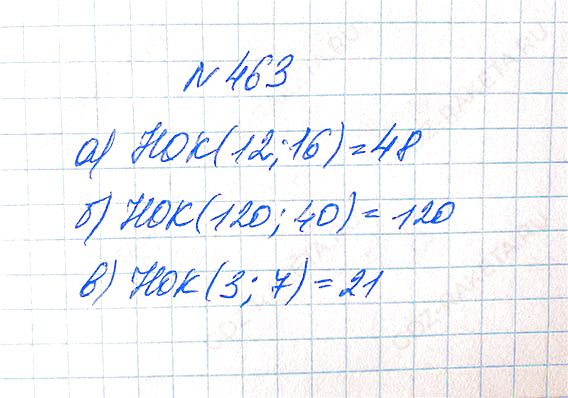 № 463
а) НОК(12;16)=48
б) НОК(120; 40)=120
в) НОК(3; 7)=21